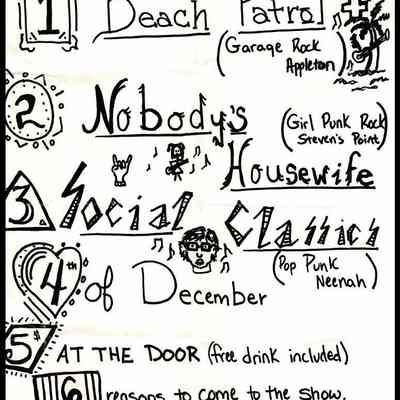 1 Beach Patrol
(Garage Rock
Appleton)
2 Nobody's
(Girl Punk Rock
Steven's Point)
Housewife
3 Social Classics
(Pop Punk
Neenah)
4th of December
5$ AT THE DOOR (free drink included)
6 reasons to come to the show.